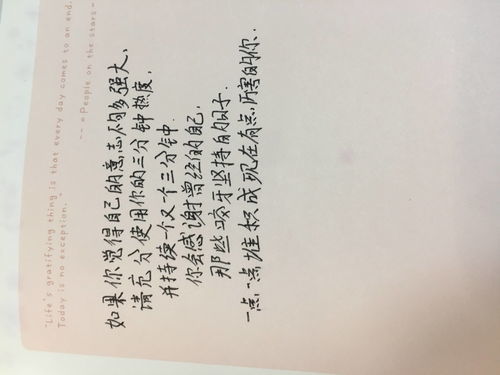 "Life's gratifying thing is that every day comes to an end.
Today is no exception."
-- «People on the stars»
如果你觉得自己的意志不够多强大，
请充分使用你的三分钟热度，
并持续一个又一个三分钟.
你会感谢曾经的自己，
那些咬牙坚持的日子.
一点一点堆积成现在有点厉害的你..